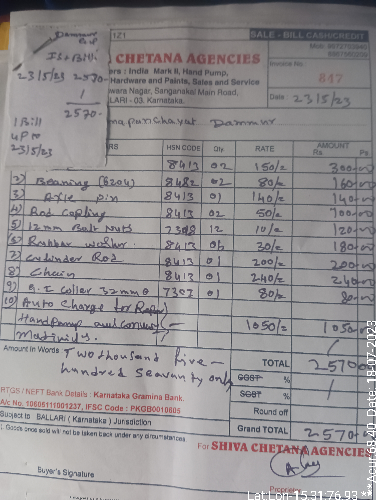 Dammur
1st Bill
23/5/23 2570-
1
2570-
1 Bill
upto
23/5/23
1Z1
SALE - BILL CASH/CREDIT
CHETANA AGENCIES
ers : India Mark II, Hand Pump,
Hardware and Paints, Sales and Service
wara Nagar, Sanganakal Main Road,
LLARI - 03. Karnataka.
Invoice No.
847
Date : 23/5/23
Dammur
RS HSN CODE Qty. RATE AMOUNT
Rs. Ps.
8413 02 150/= 300=00
2) Bearing (6204) 8482 02 80/= 160=00
3) Axle pin 8413 01 140/= 140=00
4) Rod Copling 8413 02 50/= 100=00
5) 12mm Bolt Nuts 7308 12 10/= 120=00
6) Rubbar washer 8413 06 30/= 180=00
7) Culinder Rod 8413 01 200/= 200=00
8) Chain 8413 01 240/= 240=00
9) G.I Coller 32mmø 7307 01 80/= 80=00
10) Auto Charge for Repair
Handpump and Convey 1050/= 1050=00
Matirials.
Amount in Words Two thousand five
hundred seavanty only
TOTAL 2570=00
SGST %
CGST %
Round off
Grand TOTAL 2570=00
RTGS / NEFT Bank Details : Karnataka Gramina Bank.
A/c No. 10605111001237, IFSC Code : PKGB0010605
Subject to BALLARI ( Karnataka ) Jurisdiction
Goods once sold will not be taken back under any circumstances
For SHIVA CHETANA AGENCIES
Buyer's Signature
Proprietor
Lat Lon-15.31,76.93 ***Acur 68.40 Date:18-07-2023